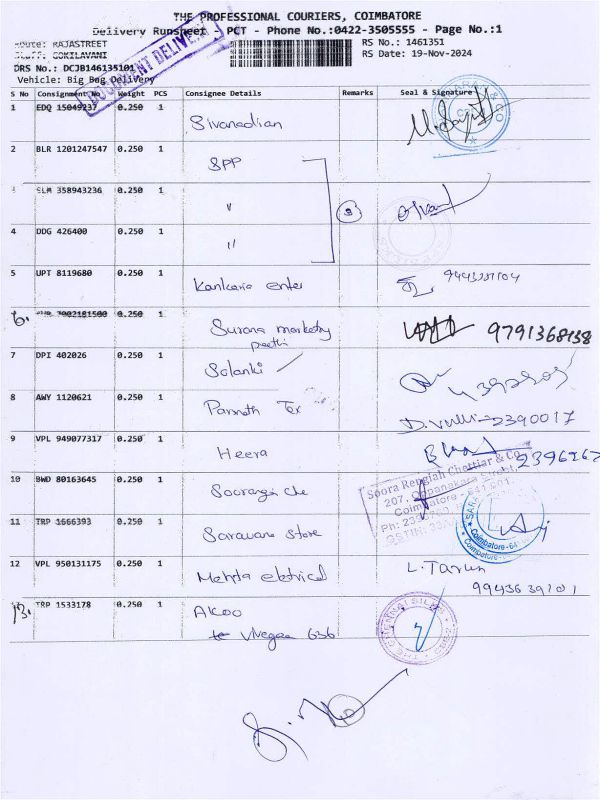 THE PROFESSIONAL COURIERS, COIMBATORE
Delivery Runsheet - PCT - Phone No.:0422-3505555 - Page No.:1
Route: RAJASTREET RS No.: 1461351
Staff: GOKILAVANI RS Date: 19-Nov-2024
DRS No.: DCJB146135101
Vehicle: Big Bog Delivery
DOCUMENT DELIVERY
S No Consignment No Weight PCS Consignee Details Remarks Seal & Signature
1 EDQ 15049237 0.250 1 Sivanadian
2 BLR 1201247547 0.250 1 SPP
3 SLM 358943236 0.250 1 "
4 DDG 426400 0.250 1 "
5 UPT 8119680 0.250 1 Kankaria enter
6. 7002181500 0.250 1 Surana marketry 9791368138
peethi
7 DPI 402026 0.250 1 Solanki
8 AWY 1120621 0.250 1 Parmoth Tex 2390017
9 VPL 949077317 0.250 1 Heera
10 BWD 80163645 0.250 1
Soora Rengiah Chettiar & Co
207, Oppanakara Street,
Coimbatore - 641 001.
11 TRP 1666393 0.250 1 Saravana store
Coimbatore
12 VPL 950131175 0.250 1 Mehta eletrical L. Tarun
13. TRP 1533178 0.250 1 Akoo